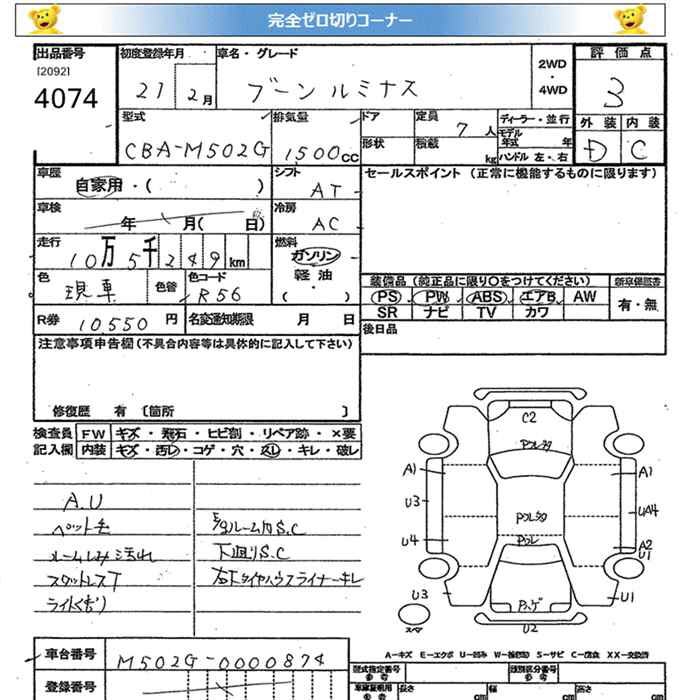 完全ゼロ切りコーナー
出品番号 初度登録年月 車名・グレード 2WD・4WD 評価点
[2092]
4074 21 2月 ブーン ルミナス 3
型式 排気量 ドア 定員 7人 ディーラー・並行 外装 内装
CBA-M502G 1500cc 形状 積載 kg モデル年式 年 D C
ハンドル 左・右
車歴 自家用・( ) シフト AT セールスポイント (正常に機能するものに限ります)
車検 年 月( 日) 冷房 AC
走行 10万5千249km 燃料 ガソリン
軽油・( )
色 現車 色替 色コード R56 装備品 (純正品に限り○をつけてください) 新車保証書
PS PW ABS エアB AW 有・無
SR ナビ TV カワ
R券 10550円 名変通知期限 月 日 後日品
注意事項申告欄(不具合内容等は具体的に記入して下さい)
修復歴 有 〔箇所 〕
検査員 FW キズ・飛石・ヒビ割・リペア跡・×要
記入欄 内装 キズ・汚レ・コゲ・穴・スレ・キレ・破レ
A.U
ペット毛 ルーム内S.C
ルームしみ汚れ 下廻りS.C
スタットレスT 右下タイヤハウスライナーキレ
ライトくもり
C2
Pスレタタ
A1 A1
U3 Pスレタタ UA4
U4 Pスレ A2
U1
U3 U1
スペア U2
A-キズ E-エクボ U-凹み W-補修跡 S-サビ C-腐食 XX-交換済
車台番号 M502G-0000874 型式指定番号 参考 類別区分番号 参考
登録番号 車庫証明用 参考 長さ cm 幅 cm 高さ cm